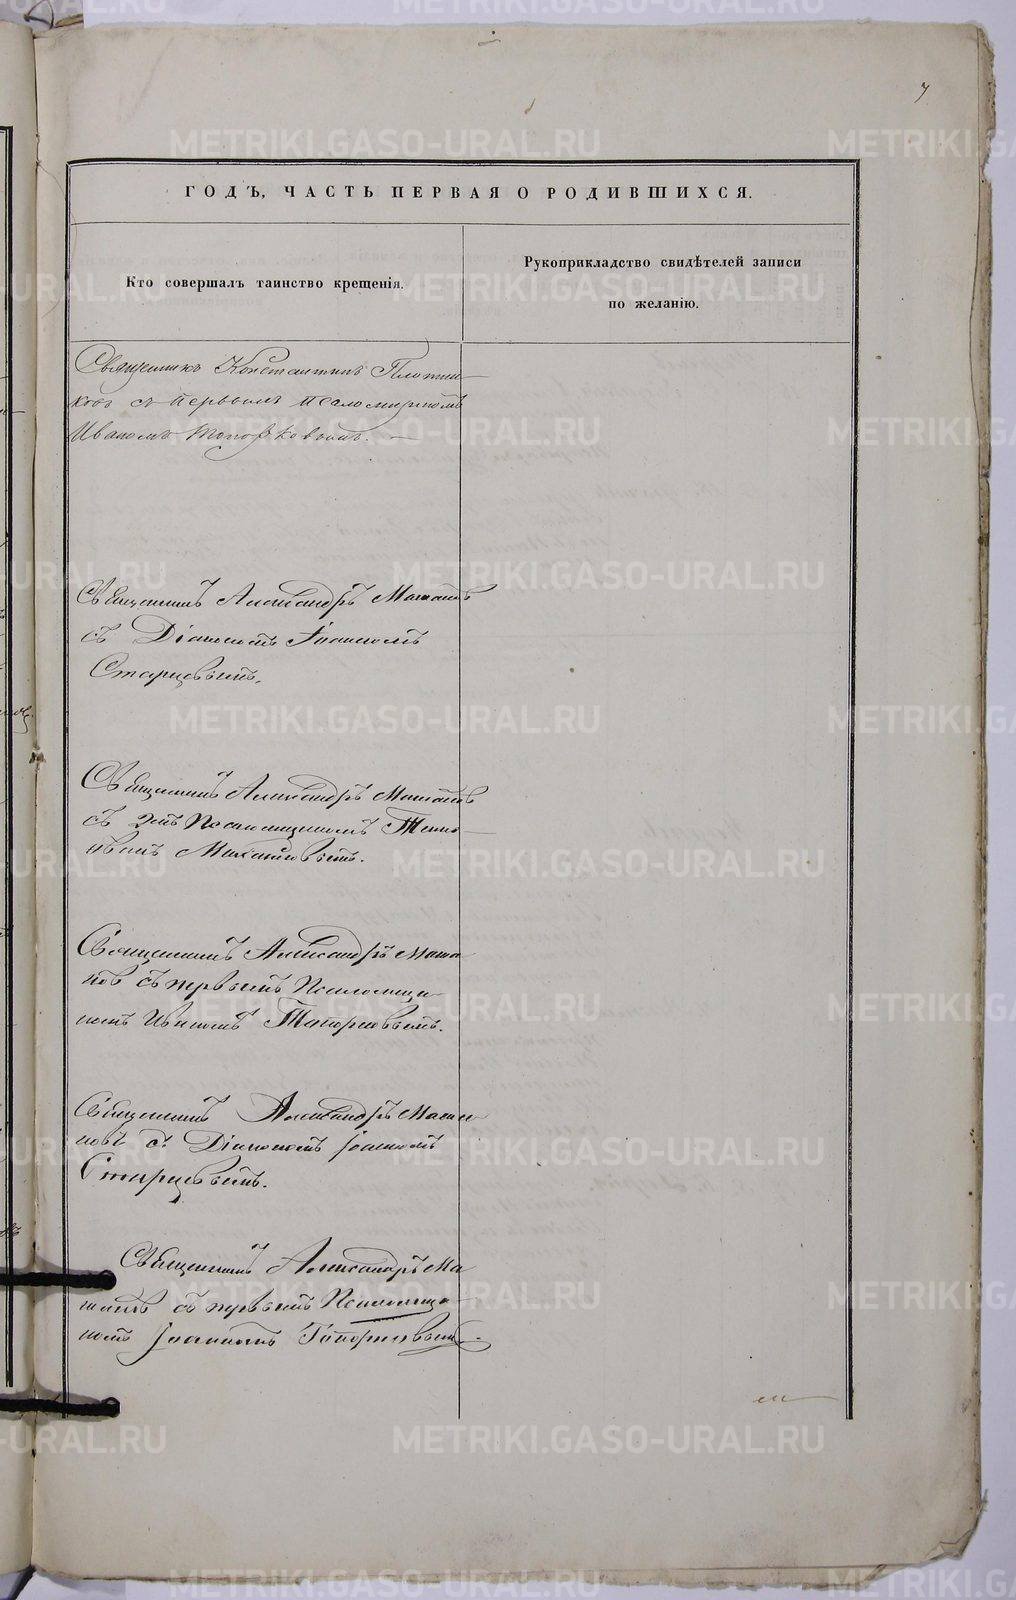 7
ГОДЪ, ЧАСТЬ ПЕРВАЯ О РОДИВШИХСЯ.
Кто совершалъ таинство крещенія.
Рукоприкладство свидѣтелей записи
по желанію.
Священникъ Константинъ Плотни-
ковъ съ первымъ псаломщикомъ
Иваномъ Топорковымъ.
Священникъ Александръ
съ Діакономъ Іоанномъ
Старцевымъ.
Священникъ Александръ
съ 2мъ Псаломщикомъ
Михайловымъ.
Священникъ Александръ
съ первымъ Псаломщи-
комъ Иваномъ Топорковымъ.
Священникъ Александръ
съ Діакономъ Іоанномъ
Старцевымъ.
Священникъ Александръ
съ первымъ Псаломщи-
комъ Іоанномъ Топорковымъ.
METRIKI.GASO-URAL.RU